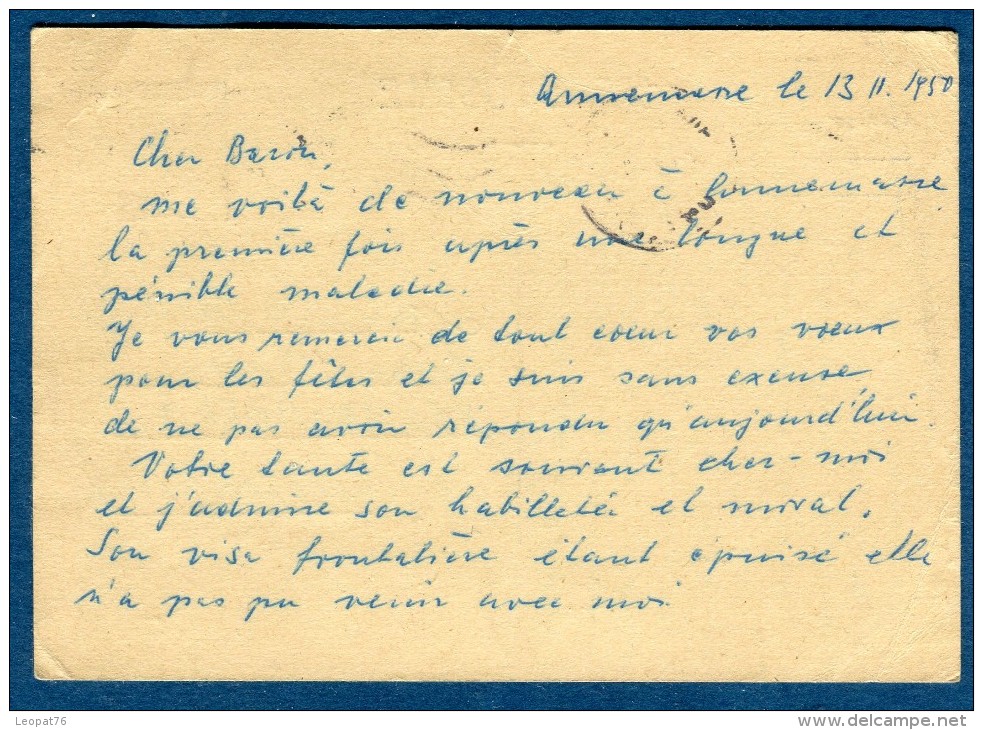 Annemasse le 13 II. 1950
Cher Baron,
me voilà de nouveau à Annemasse
la première fois après une longue et
pénible maladie.
Je vous remercie de tout coeur vos voeux
pour les fêtes et je suis sans excuse
de ne pas avoir répondu qu'aujourd'hui.
Votre tante est souvent chez-moi
et j'admire son habilleté et moral.
Son visa frontalière étant épuisé elle
n'a pas pu venir avec moi
Leopat76
http://www.delcampe.net